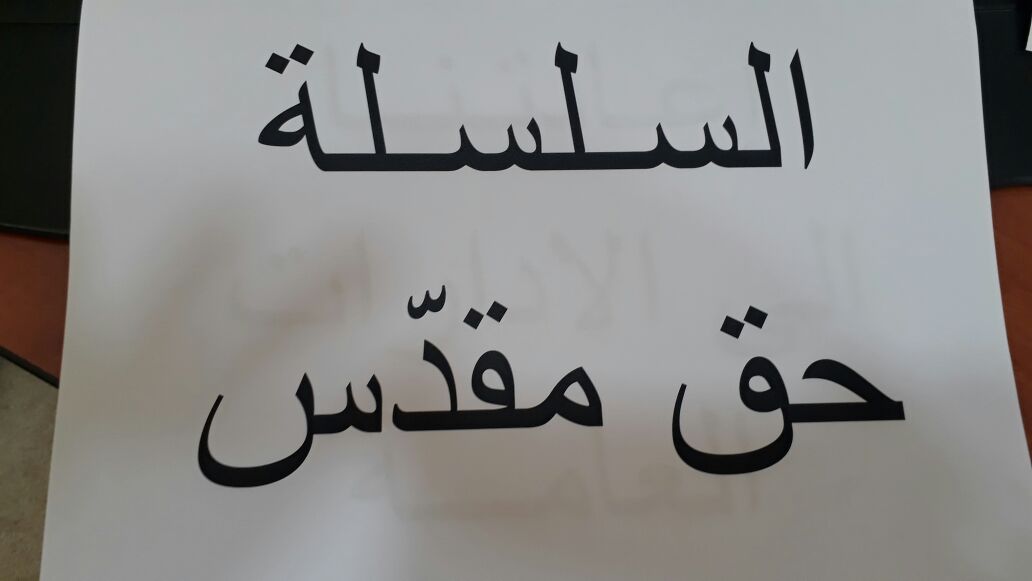 السلسلة
حق مقدّس